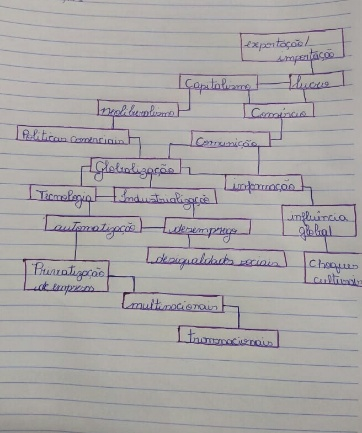 exportação/
importação
Capitalismo
lucro
neoliberalismo
Comércio
Politicas comerciais
Comunição
Globalização
informação
Tecnologia
Industrialização
automatização
desemprego
influência
global
desigualdades sociais
Choques
culturais
Privatização
de empresas
multinacionais
transnacionais